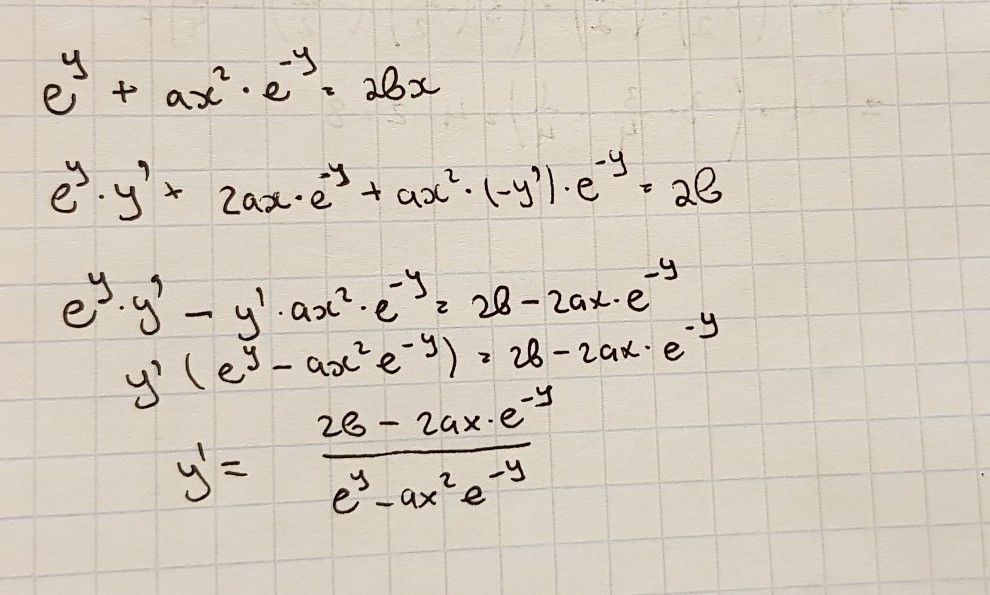 e^y + ax² · e^-y = 2bx
e^y · y' + 2ax · e^-y + ax² · (-y') · e^-y = 2b
e^y · y' - y' · ax² · e^-y = 2b - 2ax · e^-y
y' (e^y - ax² e^-y) = 2b - 2ax · e^-y
y' = (2b - 2ax · e^-y) / (e^y - ax² e^-y)